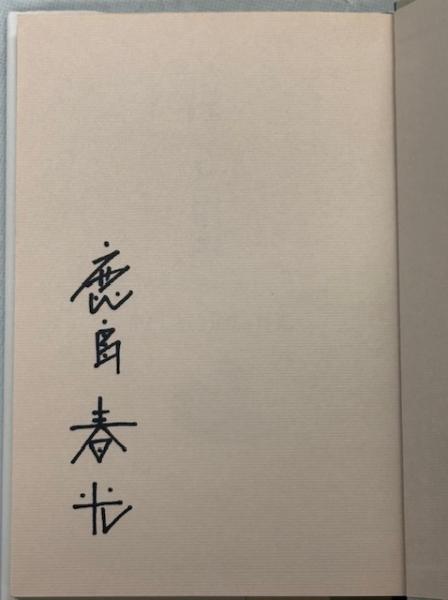 鹿島春光